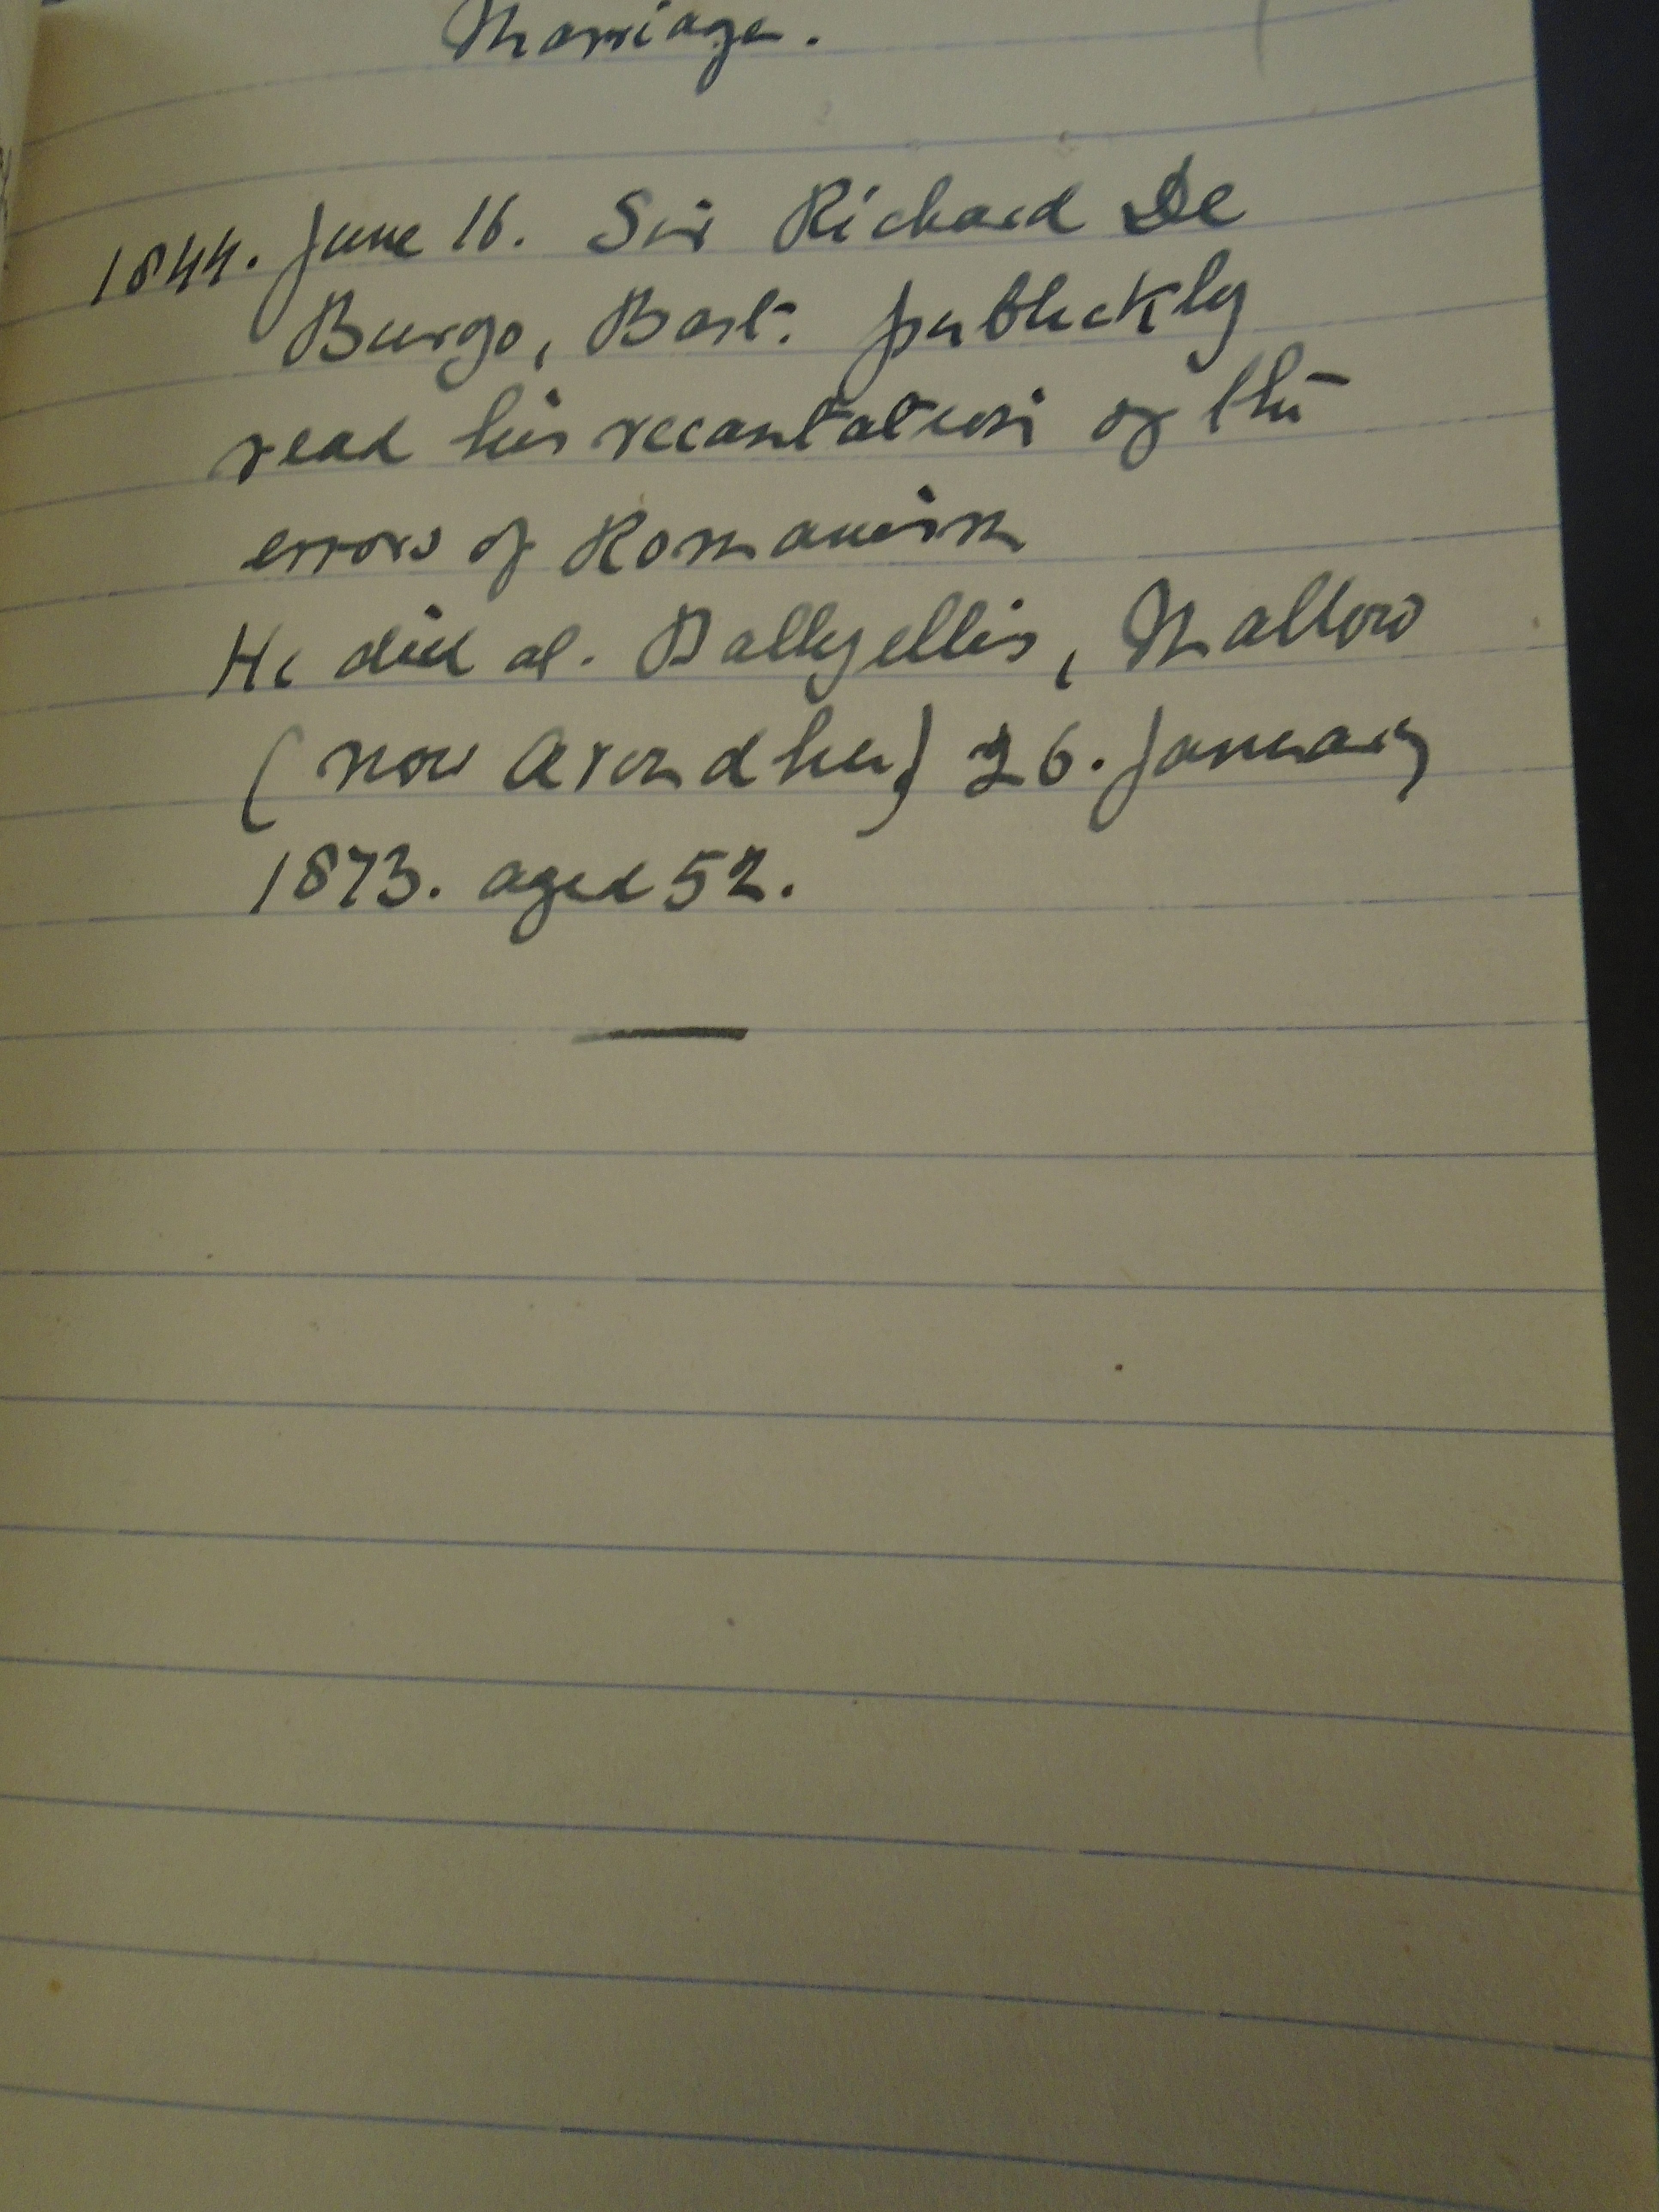 Marriage.
1844. June 16. Sir Richard De
Burgo, Bart. publickly
read his recantation of the
errors of Romanism
He died at. Ballyellis, Mallow
(now Arondhu) 26. January
1873. aged 52.